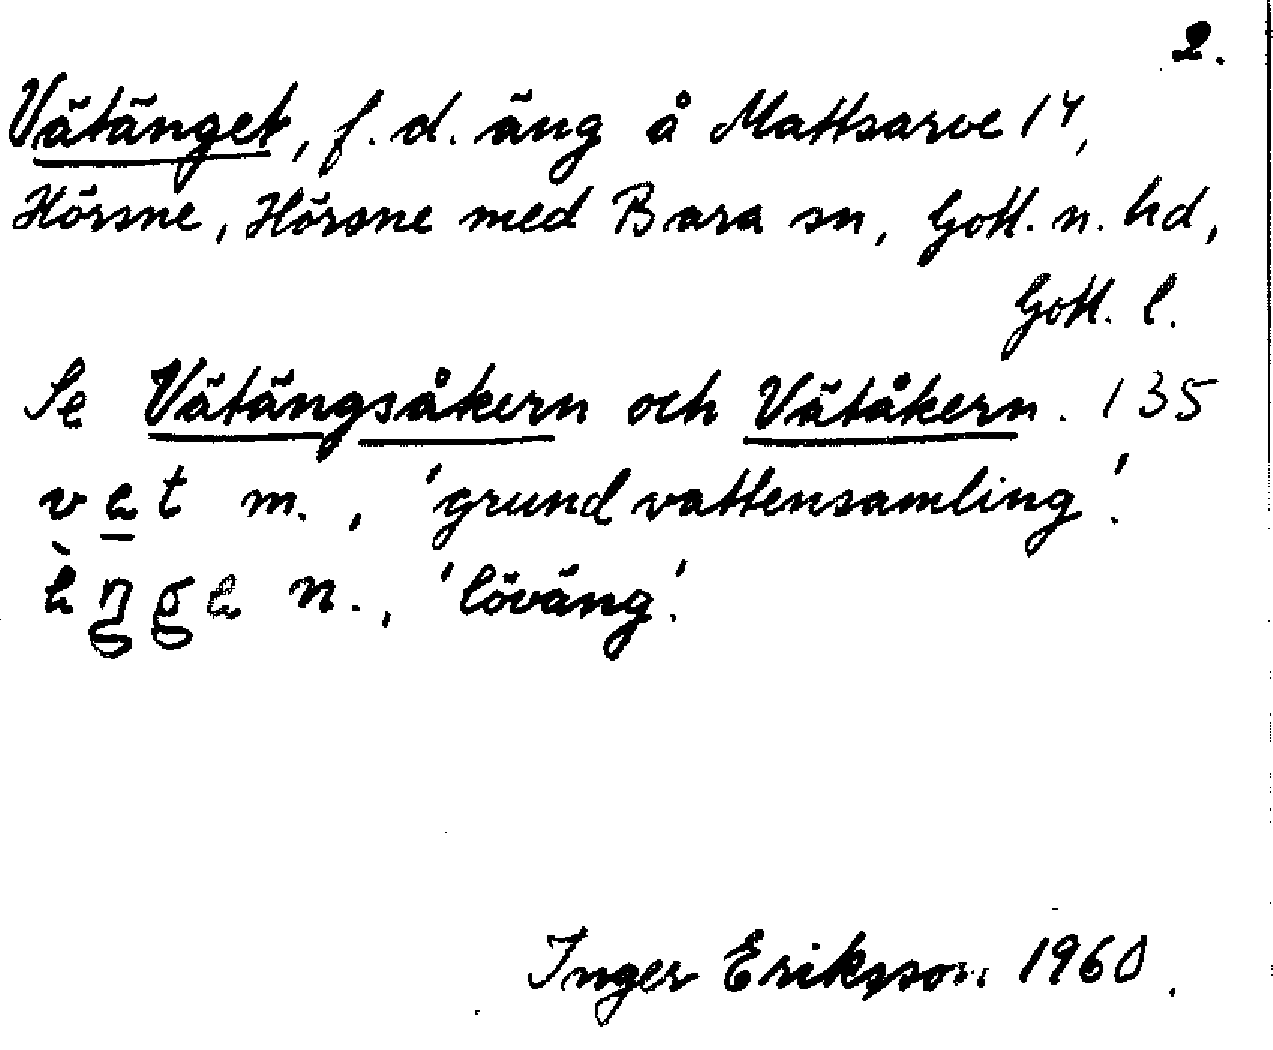 2.
Vätänget, f. d. äng å Mattsarve 14,
Hörsne, Hörsne med Bara sn, Gotl. n. hd,
Gotl. l.
Se Vätängsåkern och Vätåkern. 135
m., 'grund vattensamling'.
n., 'löväng'.
Inger Eriksson 1960.